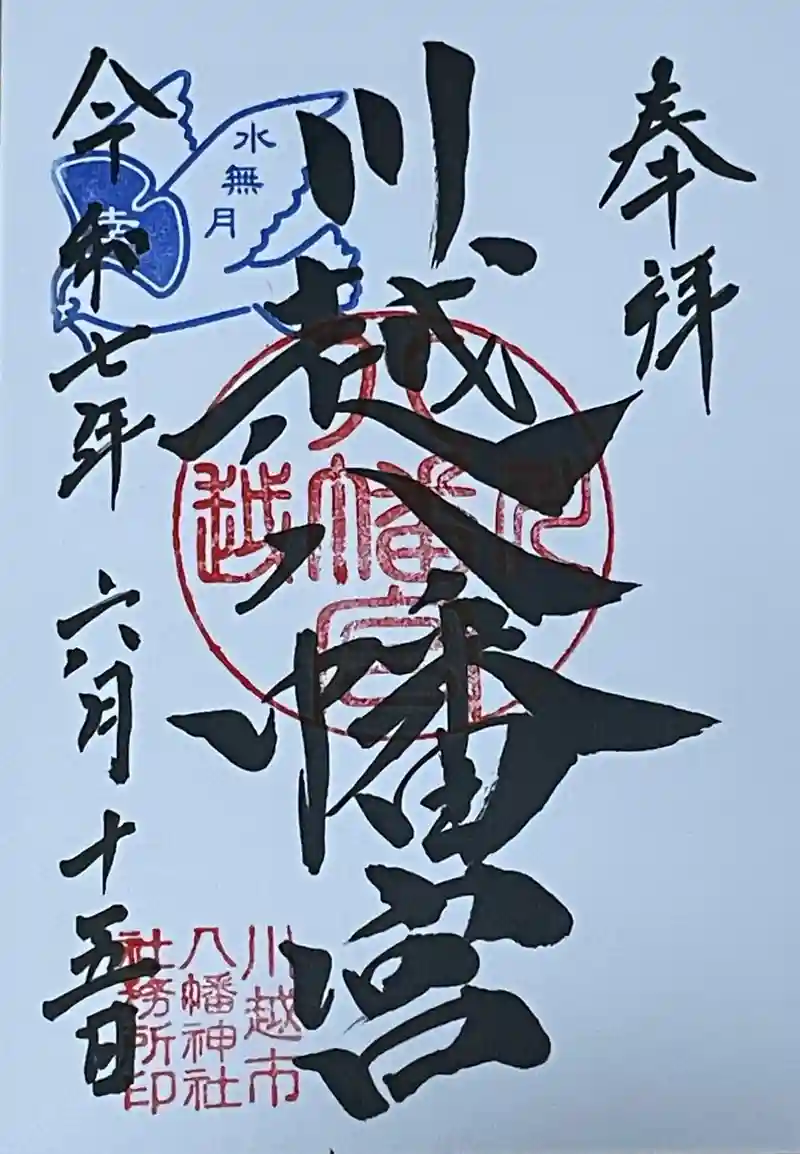 奉拝
川越八幡宮
令和七年 六月十五日
水無月
幸
川越八幡宮
川越市
八幡神社
社務所印